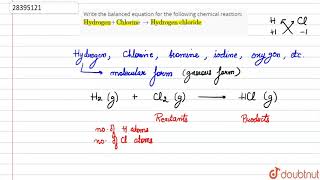 28395121
Write the balanced equation for the following chemical reaction:
Hydrogen + Chlorine → Hydrogen chloride
H Cl
+1 -1
Hydrogen, Chlorine, bromine, iodine, oxygen, etc.
molecular form (gaseous form)
H₂ (g) + Cl₂ (g) → HCl (g)
Reactants Products
no. of H atoms
no. of Cl atoms
doubtnut